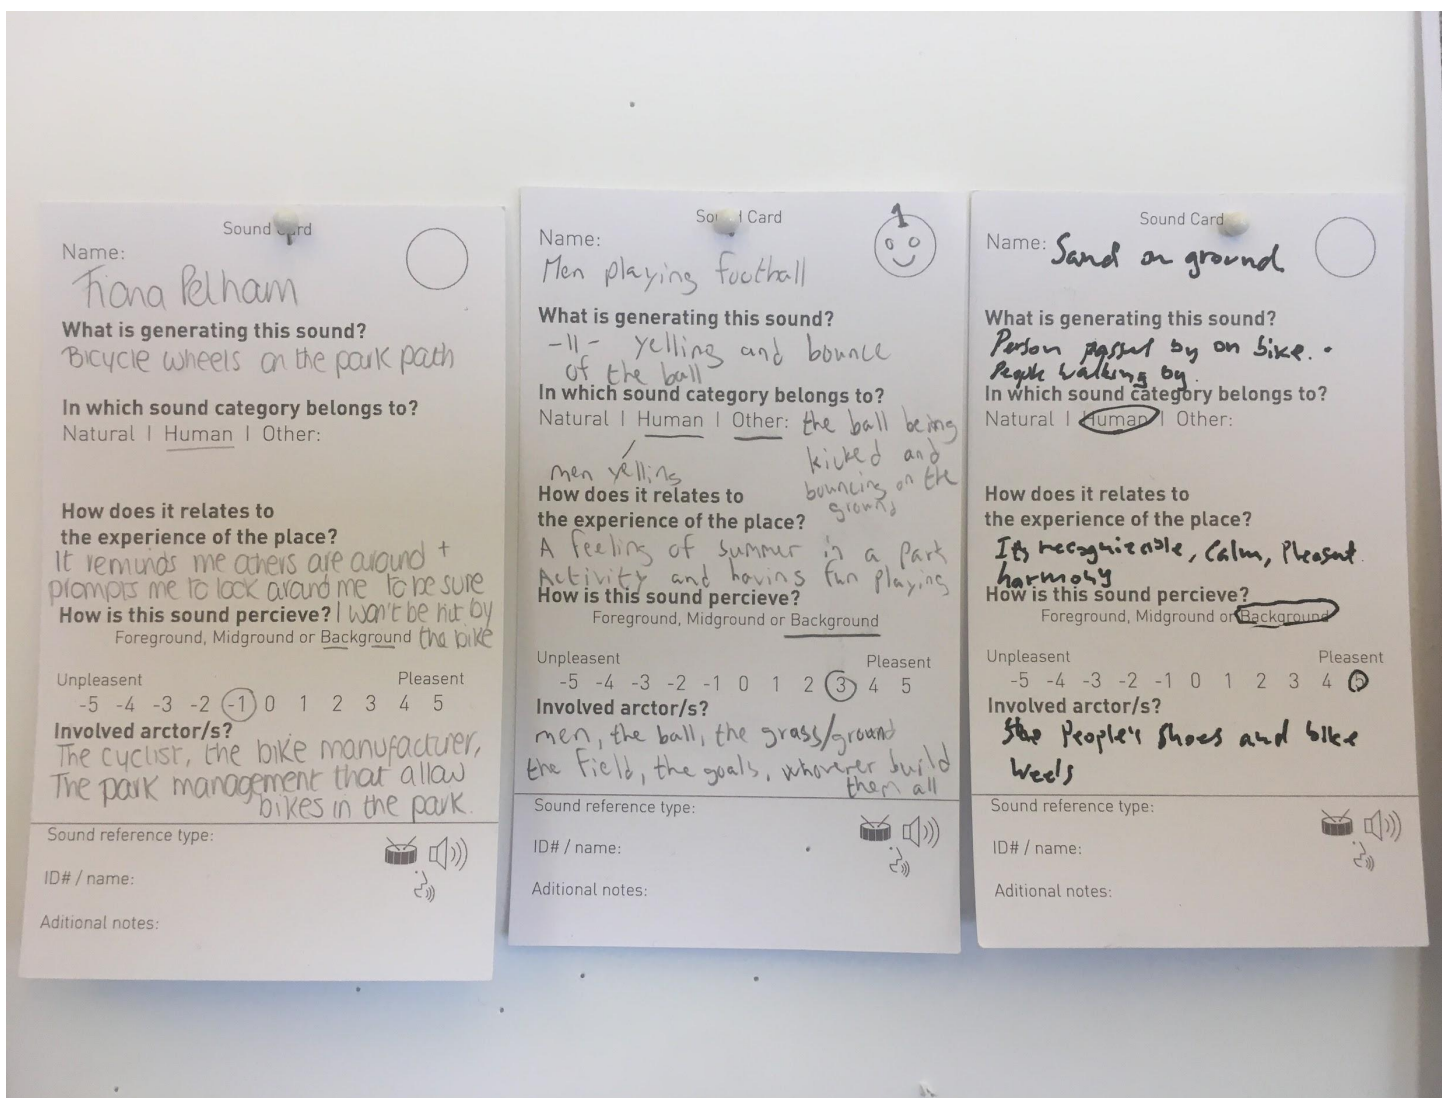 Sound Card
Name:
Fiona Pelham
What is generating this sound?
Bicycle wheels on the park path
In which sound category belongs to?
Natural | Human | Other:
How does it relates to
the experience of the place?
It reminds me others are around +
prompts me to look around me to be sure
How is this sound percieve? I won't be hit by
Foreground, Midground or Background the bike
Unpleasent Pleasent
-5 -4 -3 -2 -1 0 1 2 3 4 5
Involved arctor/s?
The cyclist, the bike manufacturer,
The park management that allow
bikes in the park.
Sound reference type:
ID# / name:
Aditional notes:
Sound Card
1
Name:
Men playing football
What is generating this sound?
-11- yelling and bounce
of the ball
In which sound category belongs to?
Natural | Human | Other: the ball being
kicked and
men yelling
bouncing on the
ground
How does it relates to
the experience of the place?
A feeling of summer in a park
Activity and having fun playing
How is this sound percieve?
Foreground, Midground or Background
Unpleasent Pleasent
-5 -4 -3 -2 -1 0 1 2 3 4 5
Involved arctor/s?
men, the ball, the grass/ground
the field, the goals, whoverer build
them all
Sound reference type:
ID# / name:
Aditional notes:
Sound Card
Name: Sand on ground
What is generating this sound?
Person passed by on bike.
People walking by.
In which sound category belongs to?
Natural | Human | Other:
How does it relates to
the experience of the place?
Its recognizable, Calm, Pleasent
harmony
How is this sound percieve?
Foreground, Midground or Background
Unpleasent Pleasent
-5 -4 -3 -2 -1 0 1 2 3 4 5
Involved arctor/s?
People's shoes and bike
weels
Sound reference type:
ID# / name:
Aditional notes: